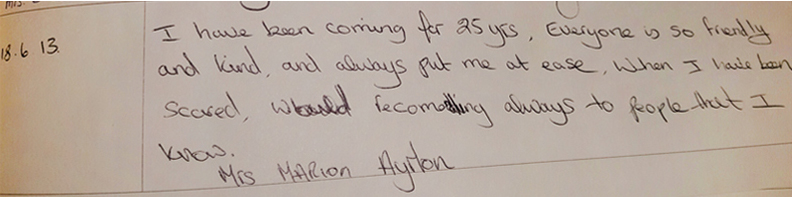 18.6 13.
I have been coming for 25 yrs, Everyone is so friendly
and kind, and always put me at ease, When I have been
Scared, Would recomending always to people that I
know.
Mrs MARion Ayrton